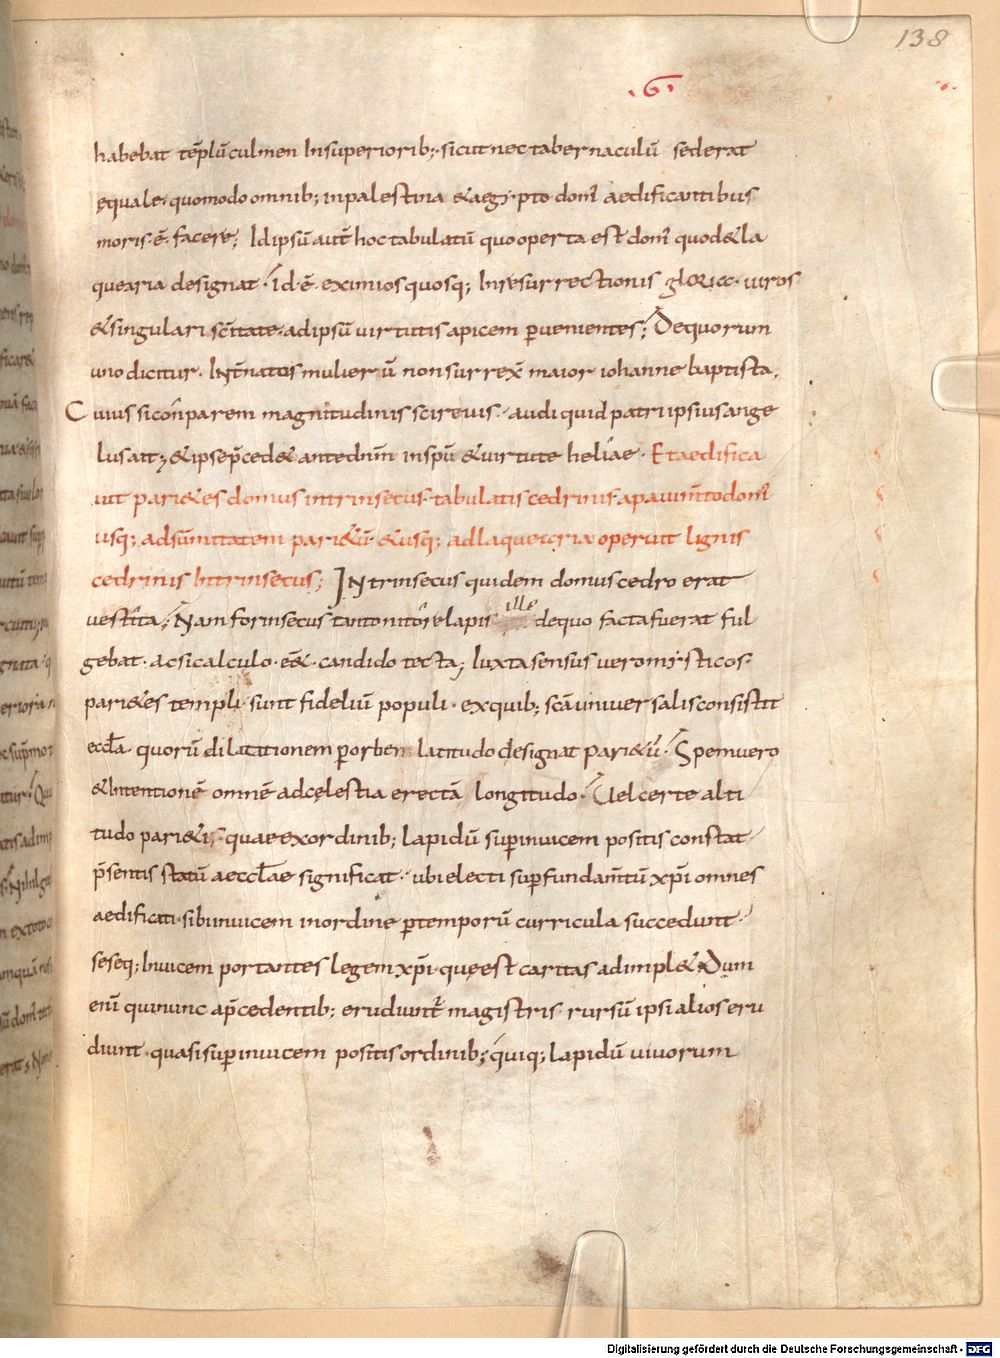 138
.6.
habebat tēplū culmen Insuperiorib; sicut nec tabernaculū sed erat
ęquale. quomodo omnib; inpalestina &aegypto domū aedificantibus
moris .ē. facere; Idipsū aut̄ hoc tabulatū quo operta est dom' quod &la
quearia designat. id .ē. eximios quosq; In resurrectionis gloria. viros
&singulari sc̄itate. ad ipsū virtutis apicem pervenientes; De quorum
uno dicitur. Int̄ natos mulierū non surrex̄ maior iohanne baptista.
Cuius si conparem magnitudinis scire vis. audi quid patri ipsius ange
lus ait; &ipse p̄ced& ante dn̄m in spū &virtute heliae. Et aedifica
vit pari&es domus intrinsecus. tabulatis cedrinis a pavim̄to dom'
usq; ad sūmitatem pari&ū. &usq; ad laquearia operuit lignis
cedrinis Intrinsecus; Intrinsecus quidem domus cedro erat
vestita; Nam forinsecus tanto nitore lapis ille de quo facta fuerat ful
gebat. ac si calculo .ēē. candido tecta; Iuxta sensus vero mysticos.
pari&es templi. sunt fideliū populi. ex quib; scā universalis consistit
eccła. quorū dilatitionem per orbem latitudo designat pari&ū. Spem vero
&Intentionē omnē ad cęlestia erectā longitudo. Vel certe alti
tudo pari&is. quae ex ordinib; lapidū sup invicem positis constat.
p̄sentis statū aeccłae significat. ubi electi sup fundam̄tū xp̄i omnes
aedificati. sibi invicem in ordine p temporū curricula succedunt.
seseq; Invicem portantes legem xp̄i. quę est caritas adimpl& Dum
enī qui nunc a p̄cedentib; erudiunt̄ magistris. rursū ipsi alios eru
diunt. quasi sup invicem positis ordinib; quiq; lapidū vivorum
Digitalisierung gefördert durch die Deutsche Forschungsgemeinschaft - DFG